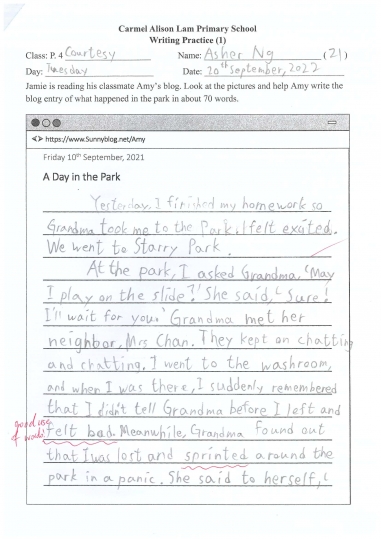 Carmel Alison Lam Primary School
Writing Practice (1)
Class: P. 4 Courtesy Name: Asher Ng (21)
Day: Tuesday Date: 20th September, 2022
Jamie is reading his classmate Amy's blog. Look at the pictures and help Amy write the
blog entry of what happened in the park in about 70 words.
https://www.Sunnyblog.net/Amy
Friday 10th September, 2021
A Day in the Park
Yesterday, I finished my homework so
Grandma took me to the Park. I felt excited.
We went to Starry Park.
At the park, I asked Grandma, 'May
I play on the slide?' She said, 'Sure!
I'll wait for you.' Grandma met her
neighbor, Mrs Chan. They kept on chatting
and chatting. I went to the washroom,
and when I was there, I suddenly remembered
that I didn't tell Grandma before I left and
good use of words
felt bad. Meanwhile, Grandma found out
that I was lost and sprinted around the
park in a panic. She said to herself, '